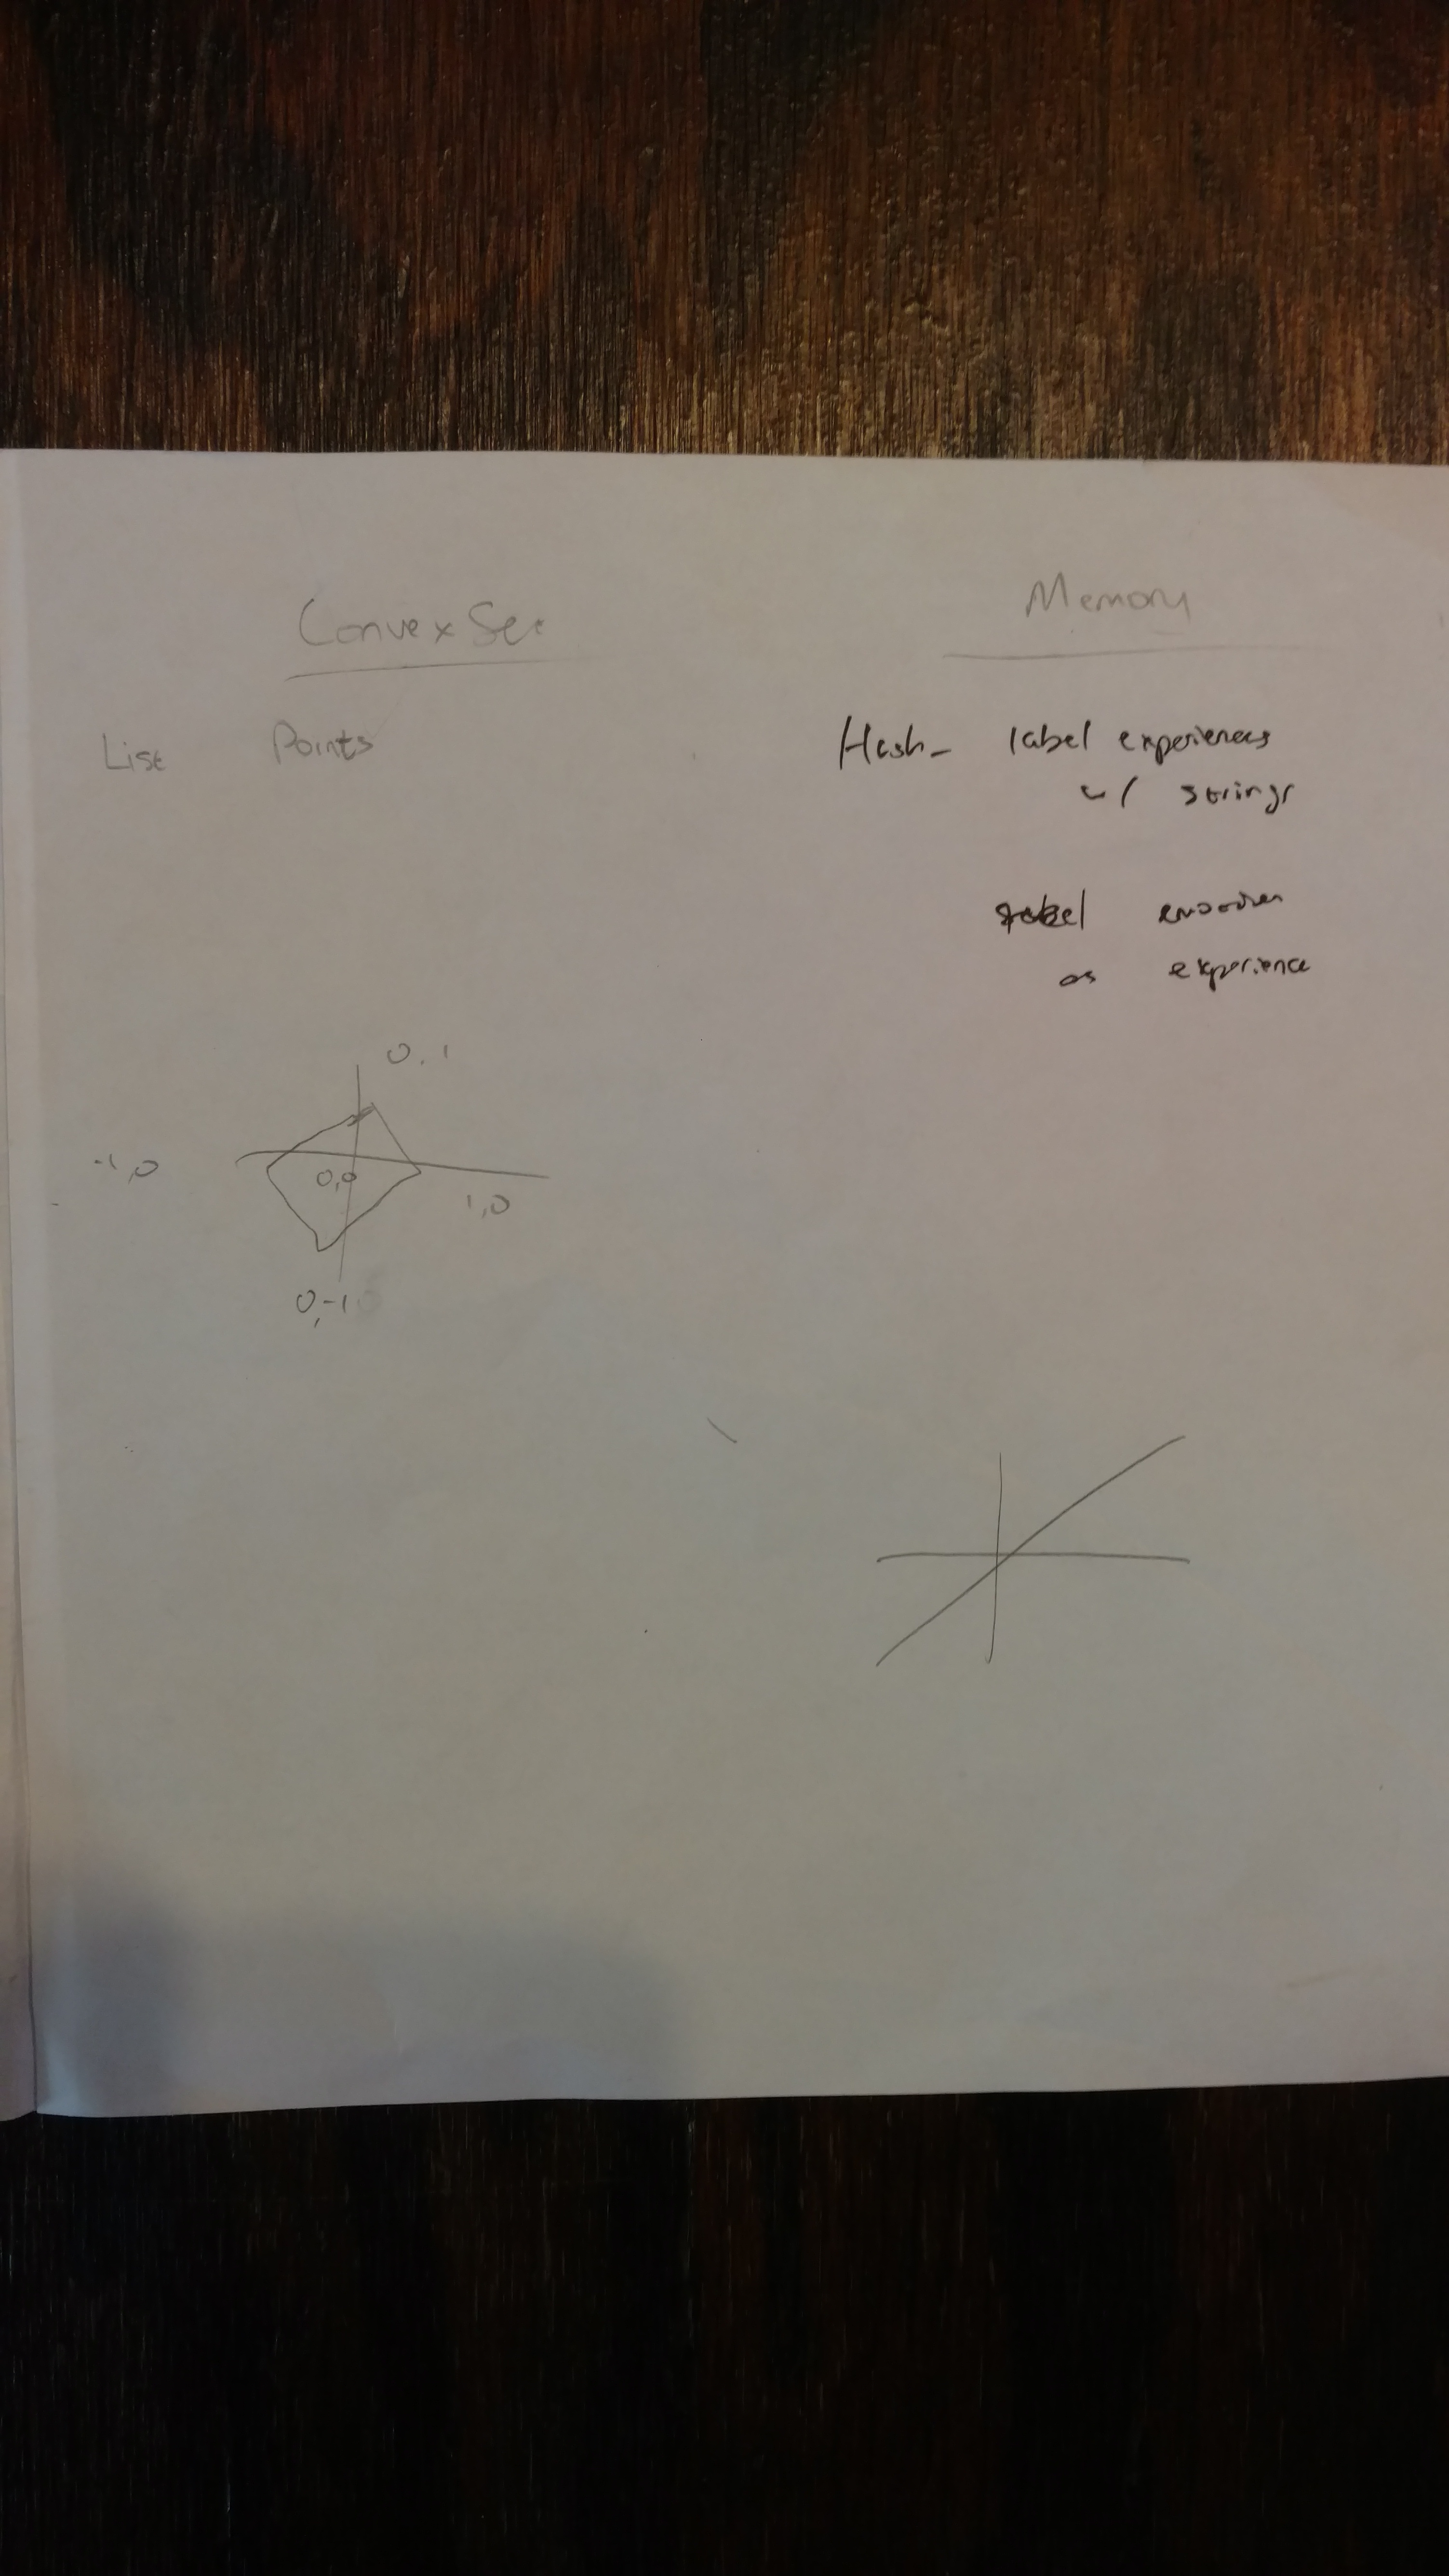 Convex Set
List Points
0.1
-1,0
0,0
1,0
0,-1
Memory
Hash - label experiences
w/ strings
label
as experience